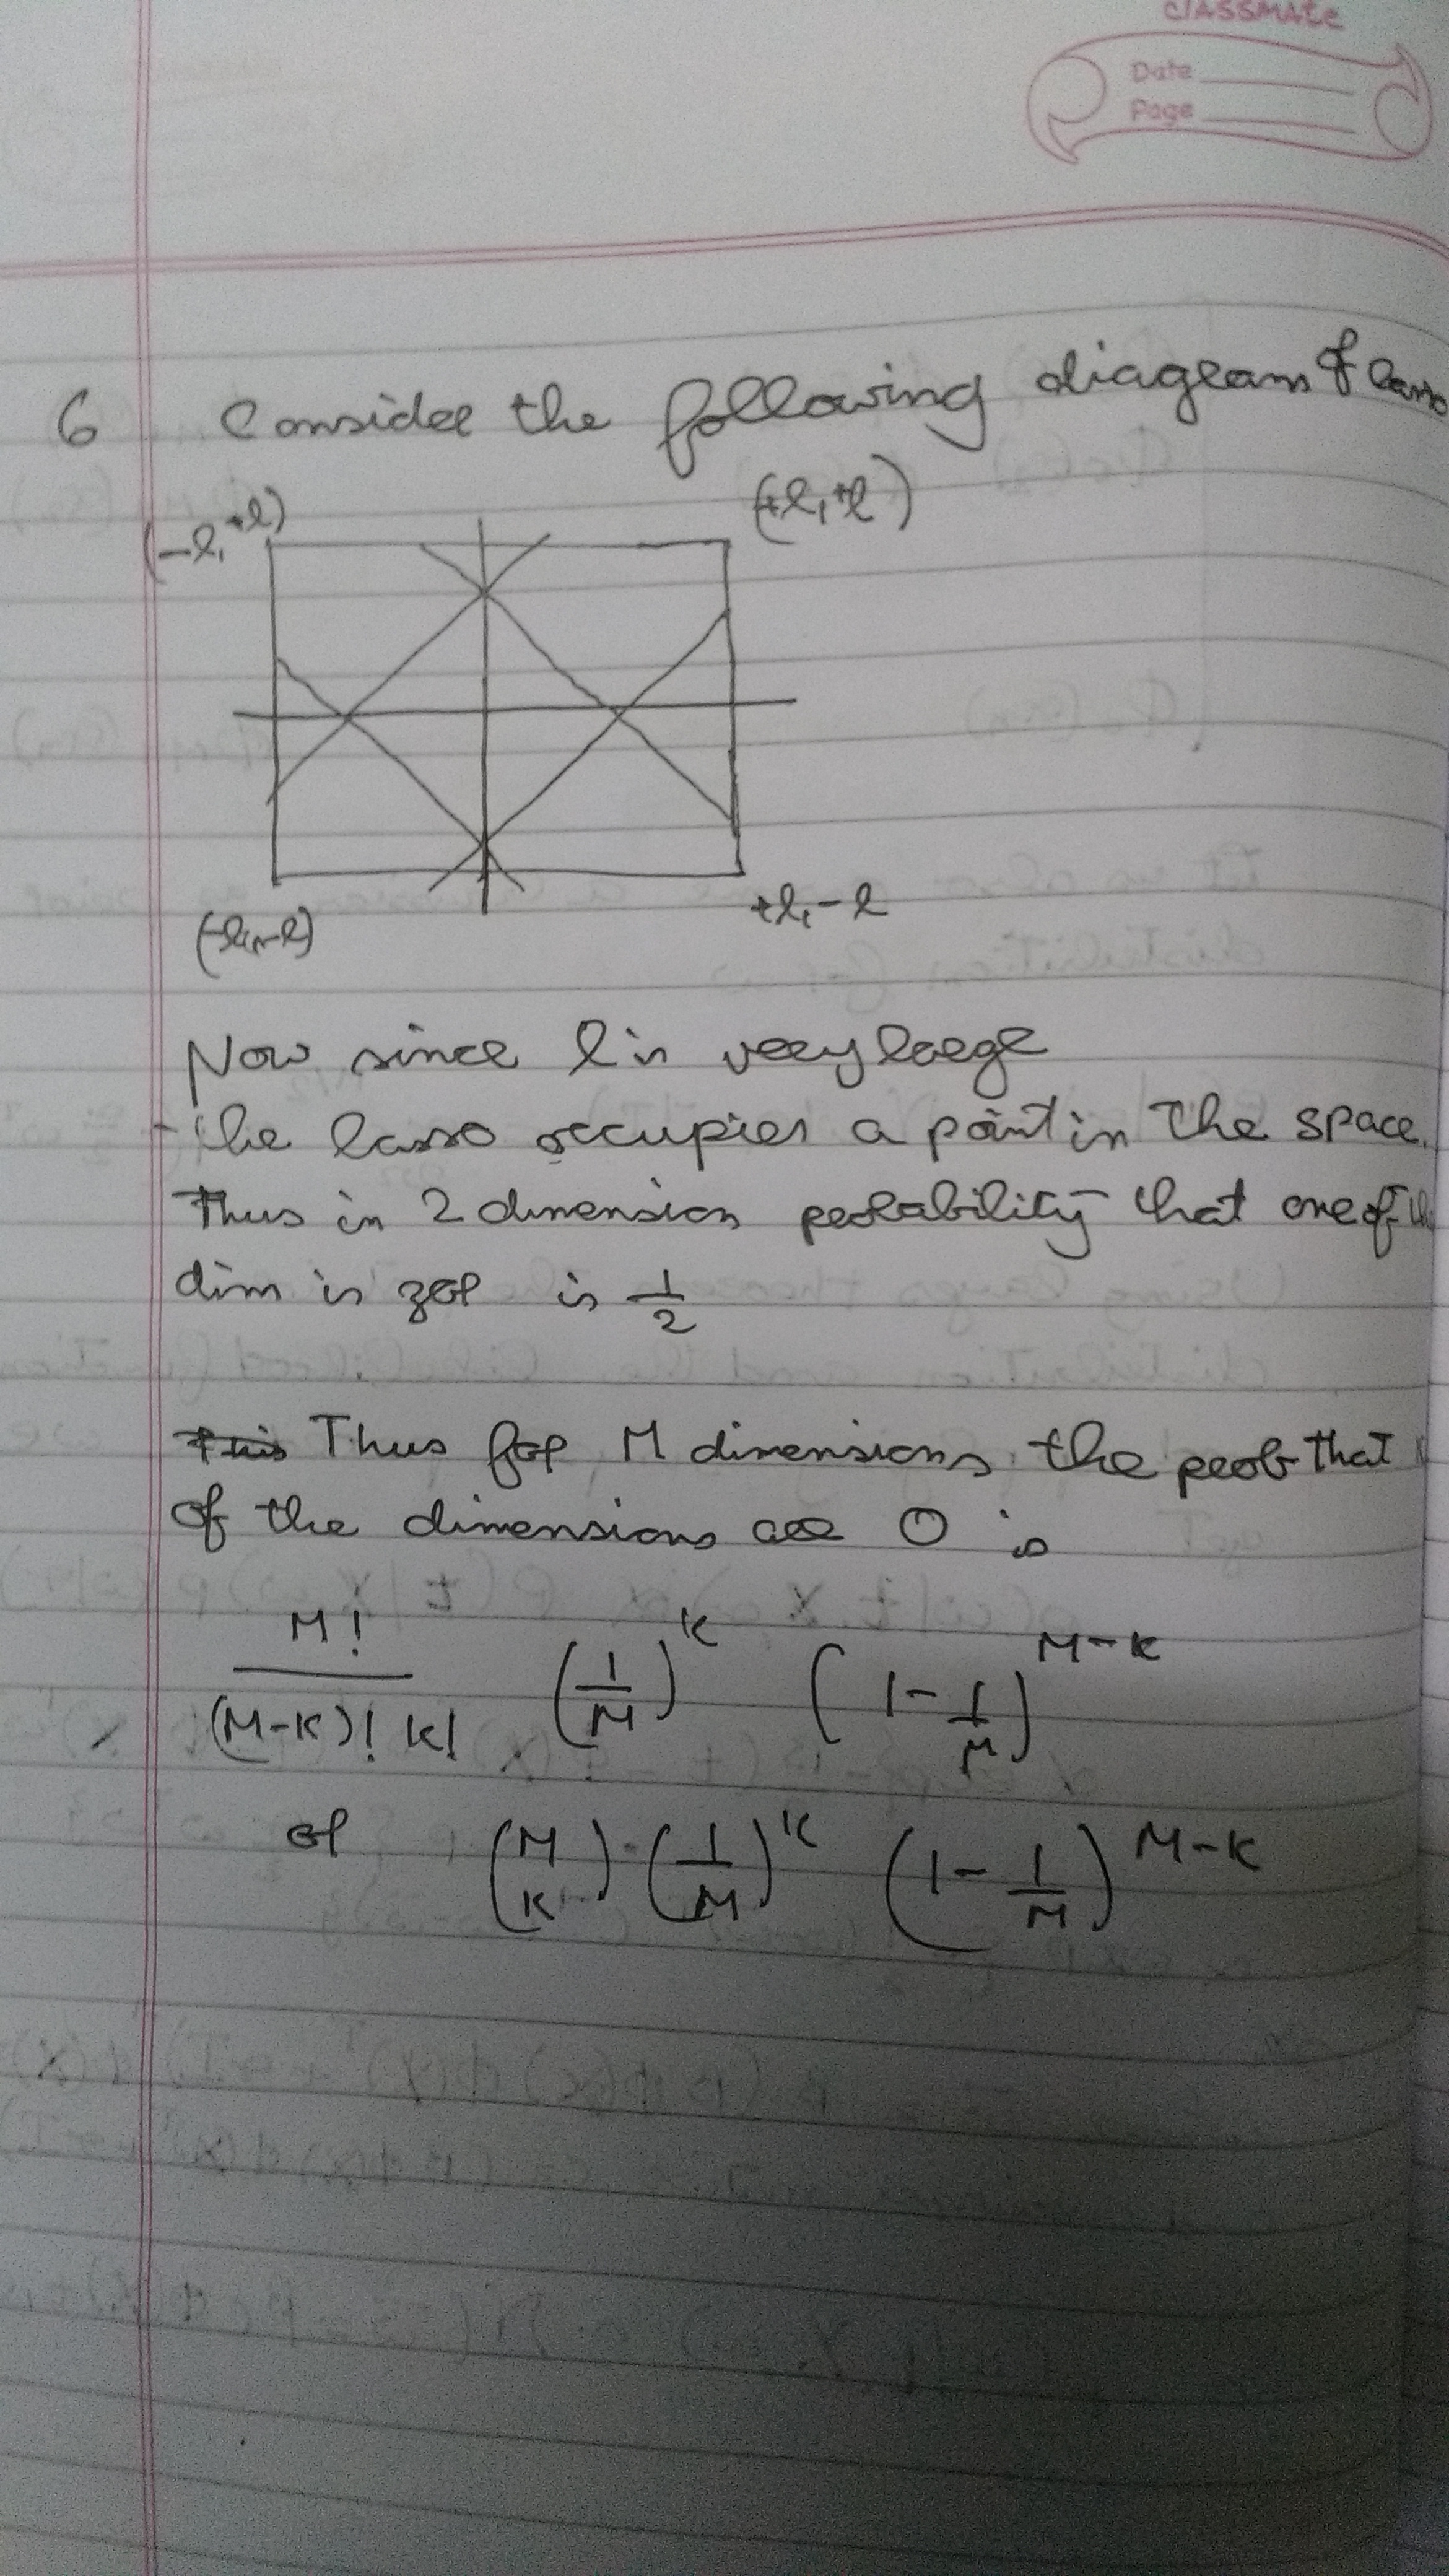 classmate
Date
Page
6 Consider the following diagram of lasso
(-l, +l) (+l, +l)
(-l, -l) +l, -l
Now since l is very large
the lasso occupies a point in the space.
Thus in 2 dimension probability that one of the
dim is zero is 1/2
This Thus for M dimensions, the prob that
of the dimensions are 0 is
M! / (M-K)! K! (1/M)^K (1 - 1/M)^M-K
or (M K) · (1/M)^K (1 - 1/M)^M-K